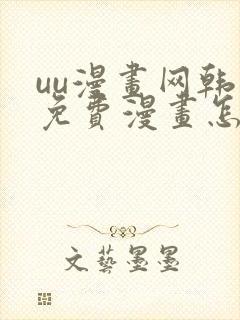 uu漫畫网韩
免費漫畫怎
文藝墨墨